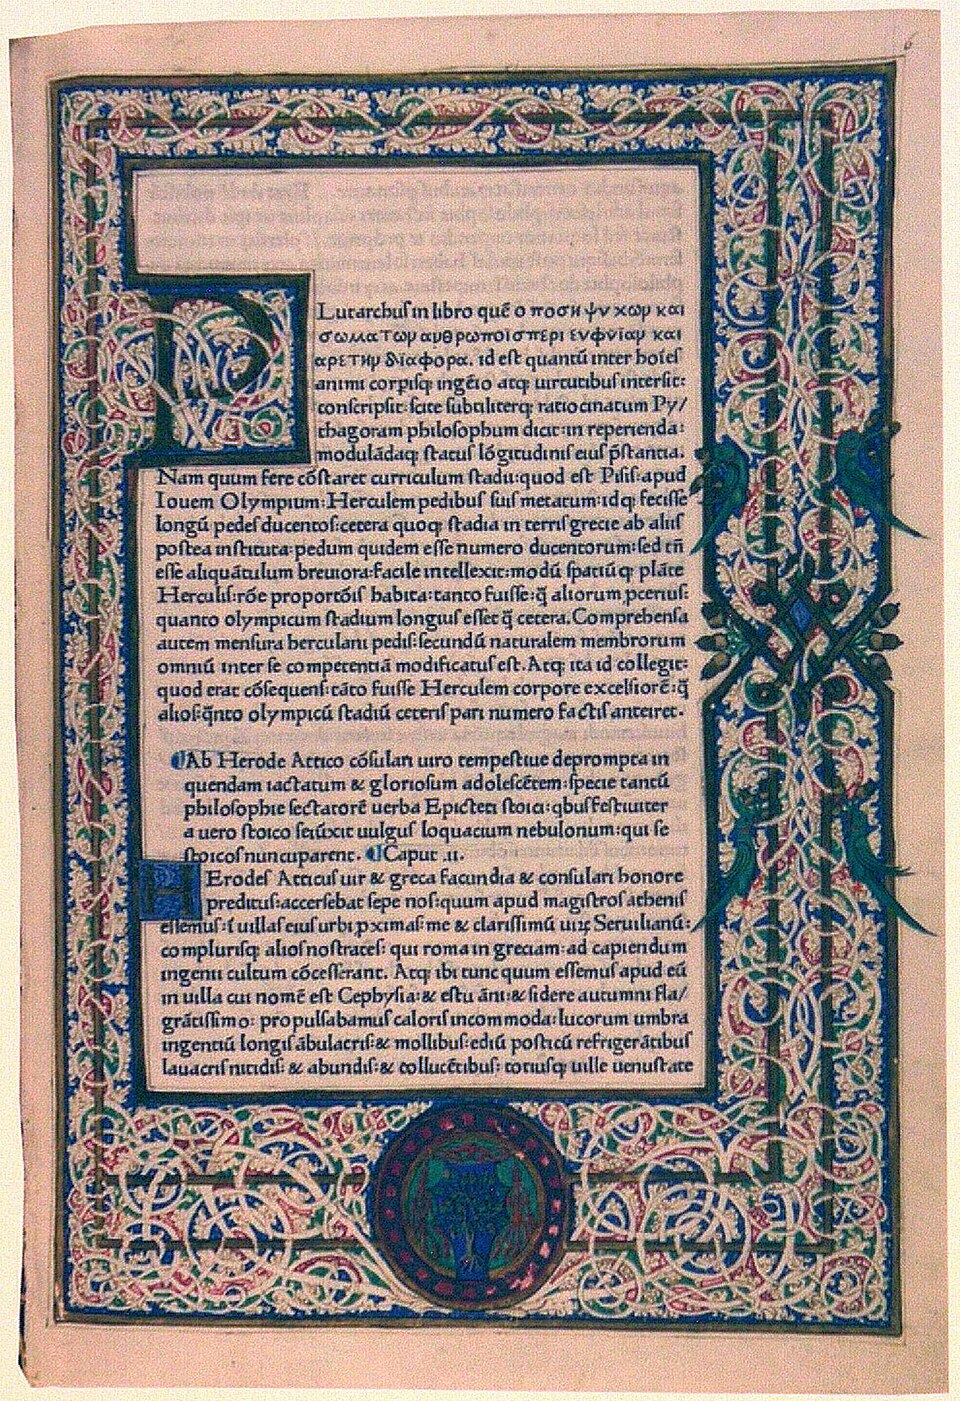 6
PLutarchuſ in libro quē ο ποση ψυχωρ και
σωματωρ ανθρωποισπερι ευφνιαρ και
αρετηρ διαφορα. id eſt quantū inter hoīeſ
animi corpiſq; ingēio atq; uirtutibuſ interſit:
conſcripſit: ſcite ſubtiliterq; ratiocinatum Py/
thagoram philoſophum dicit: in reperienda:
modulādaq; ſtatuſ lōgitudiniſ eiuſ p̄ſtantia.
Nam quum fere cōſtaret curriculum ſtadii: quod eſt Piſiſ: apud
Iouem Olympium: Herculem pedibuſ ſuiſ metatum: idq; feciſſe
longū pedeſ ducentoſ: cetera quoq; ſtadia in terriſ grecie ab aliiſ
poſtea inſtituta: pedum quidem eſſe numero ducentorum: ſed tn̄
eſſe aliquātulum breuiora: facile intellexit: modū ſpatiūq; plāte
Herculiſ: rōe proportōiſ habita: tanto fuiſſe: q̄ aliorum ꝓceriuſ:
quanto olympicum ſtadium longiuſ eſſet q̄ cetera. Comprehenſa
autem menſura herculani pediſ: ſecundū naturalem membrorum
omniū inter ſe competentiā modificatuſ eſt. Atq; ita id collegit:
quod erat cōſequenſ: tāto fuiſſe Herculem corpore excelſiorē: q̄
alioſ: q̄nto olympicū ſtadiū ceteriſ pari numero factiſ anteiret.
Ab Herode Attico cōſulari uiro tempeſtiue deprompta in
quendam iactatum & glorioſum adoleſcētem: ſpecie tantū
philoſophie ſectatorē uerba Epicteti ſtoici: qbuſ feſtiuiter
a uero ſtoico ſeiūxit uulguſ loquacium nebulonum: qui ſe
ſtoicoſ nuncuparent. Caput .ii.
HErodeſ Atticuſ uir & greca facundia & conſulari honore
predituſ: accerſebat ſepe noſ: quum apud magiſtroſ atheniſ
eſſemuſ: ī uillaſ eiuſ urbi ꝓximaſ: me & clariſſimū uiꝝ Seruilianū:
compluriſq; alioſ noſtrateſ: qui roma in greciam: ad capiendum
ingenii cultum cōceſſerant. Atq; ibi tunc quum eſſemuſ apud eū
in uilla cui nomē eſt Cephyſia: & eſtu āni: & ſidere autumni fla/
grātiſſimo: propulſabamuſ caloriſ incommoda: lucorum umbra
ingentiū longiſ ābulacriſ: & mollibuſ: ediū poſticū refrigerātibuſ
lauacriſ nitidiſ: & abundiſ: & collucētibuſ: totiuſq; uille uenuſtate